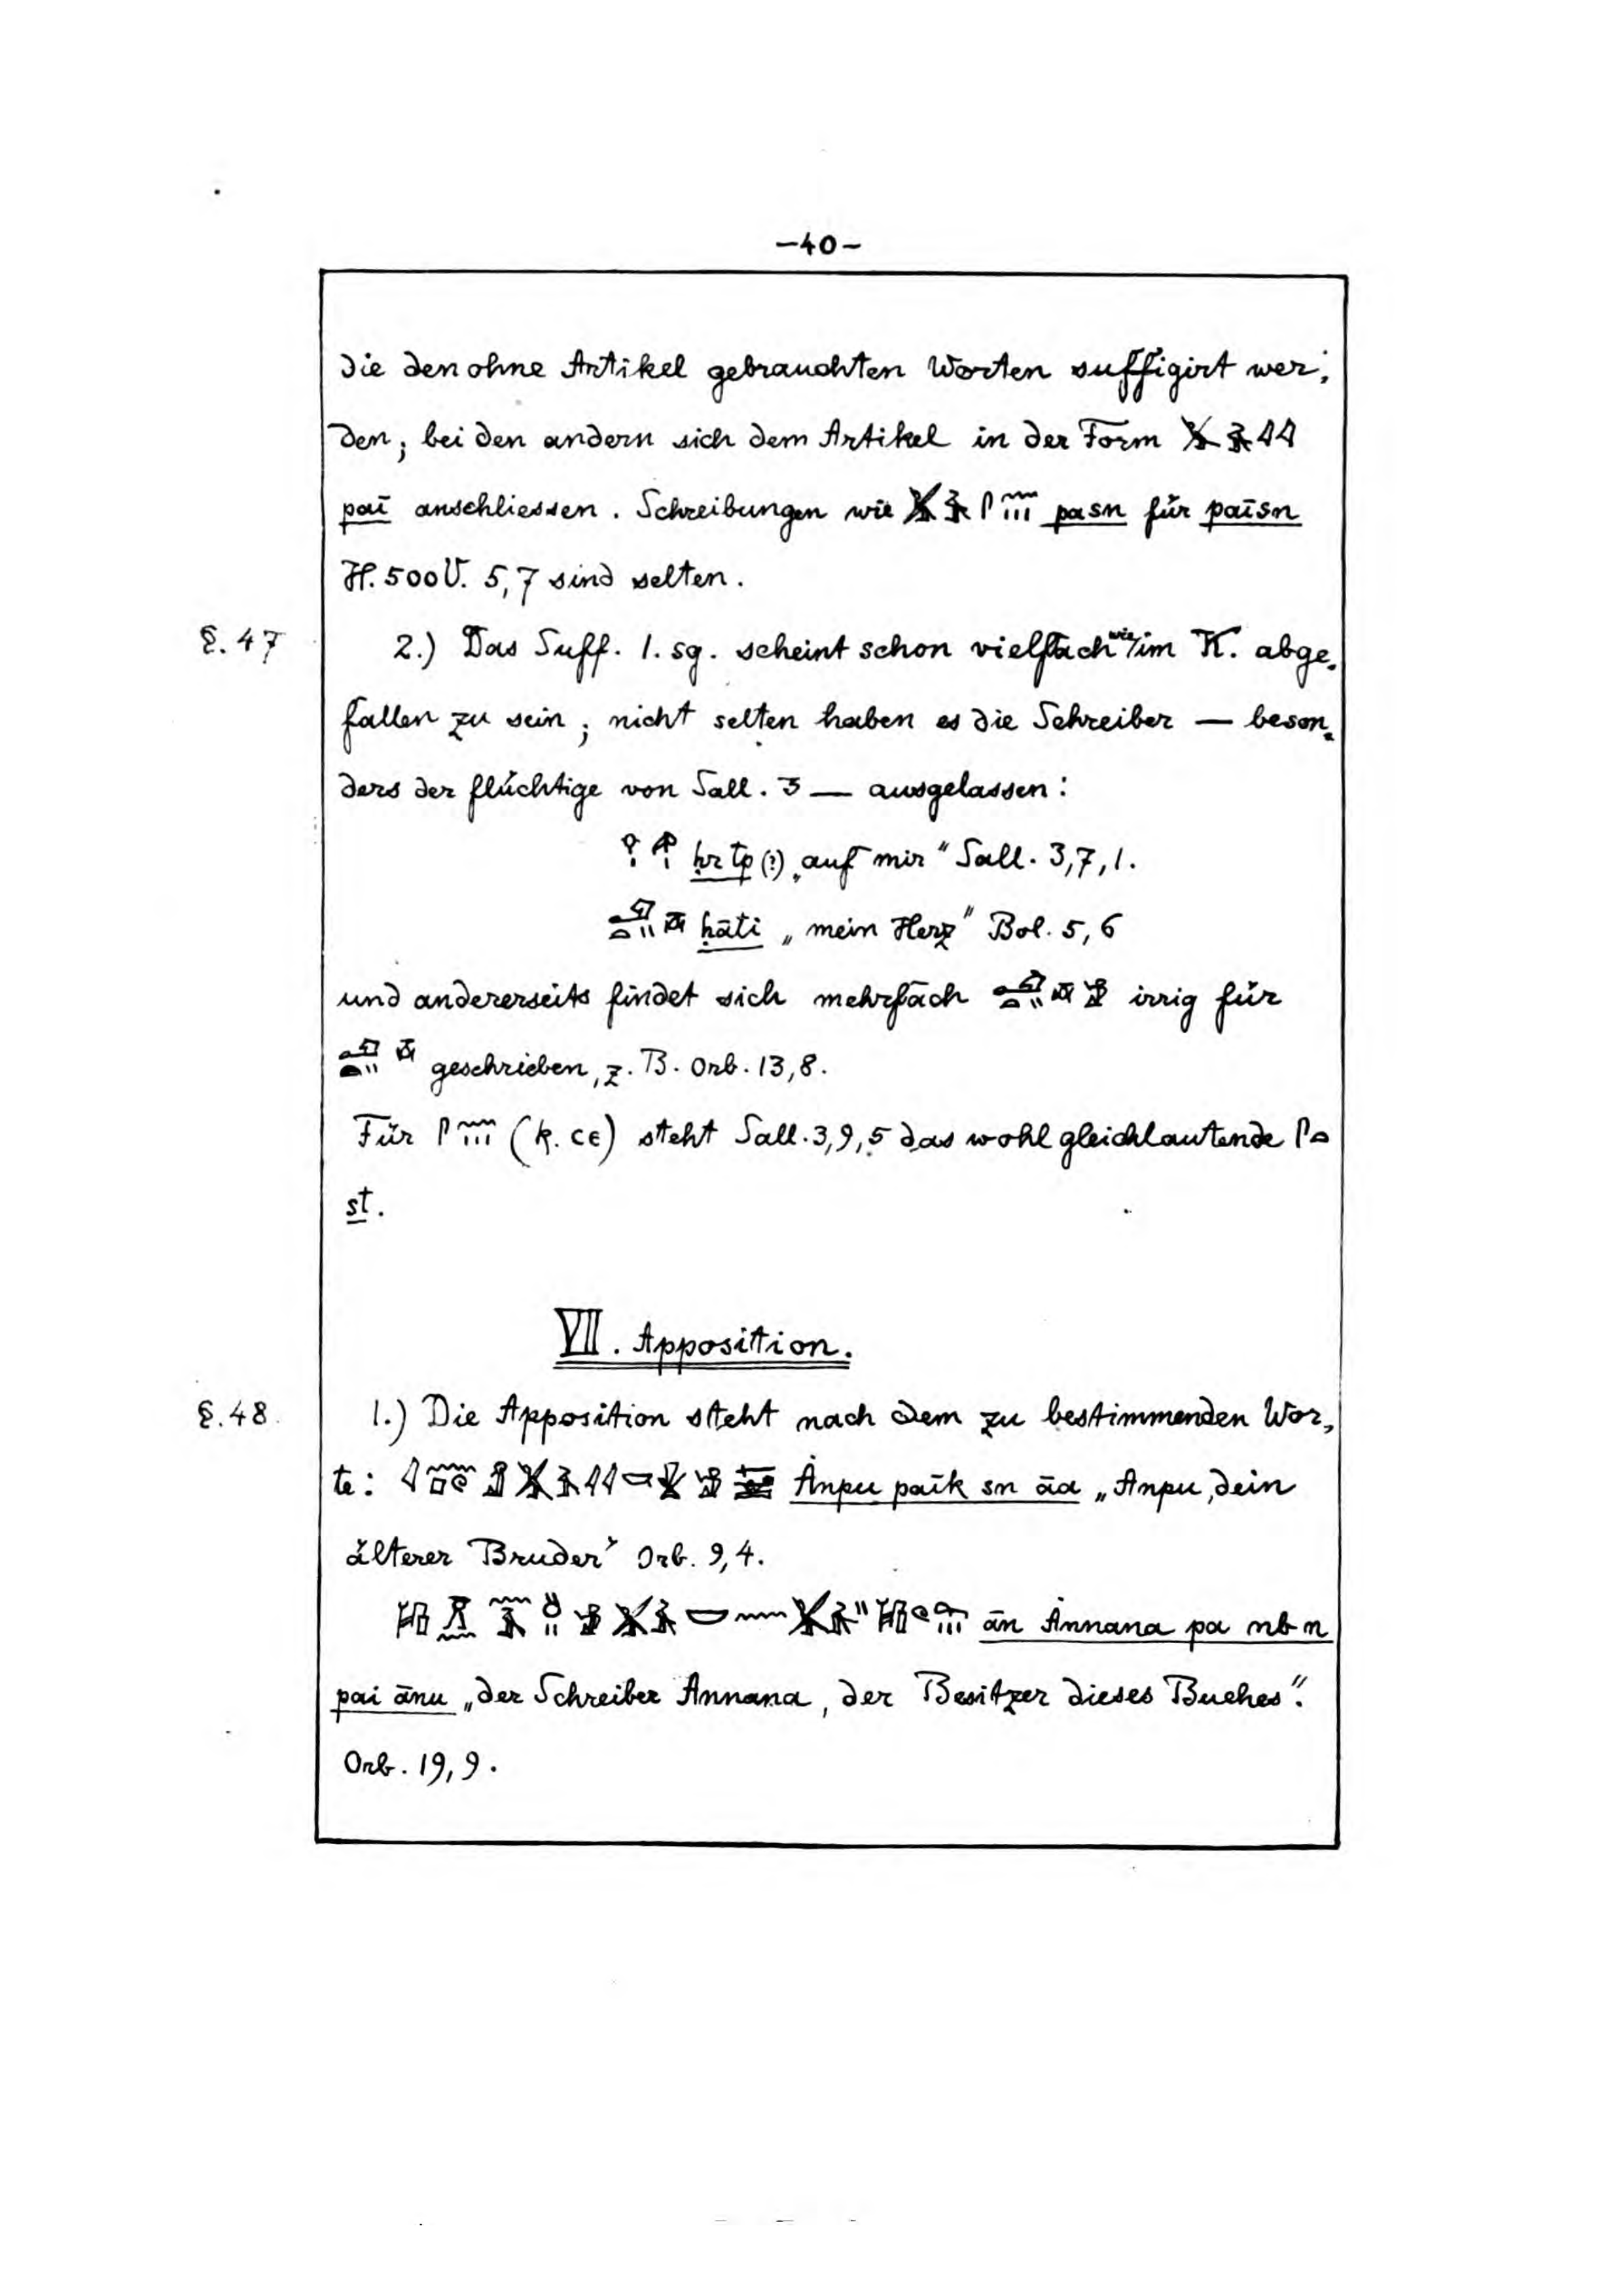 -40-
die den ohne Artikel gebrauchten Worten suffigirt wer,
den, bei den andern sich dem Artikel in der Form
paī anschliessen. Schreibungen wie pasn für païsn
H. 500 V. 5,7 sind selten.
§. 47 2.) Das Suff. 1. sg. scheint schon vielfach wie im K. abge,
fallen zu sein; nicht selten haben es die Schreiber — beson,
ders der flüchtige von Sall. 3 — ausgelassen:
ḥr tp (?) „auf mir“ Sall. 3,7,1.
ḥāti „mein Herz“ Bol. 5,6
und andererseits findet sich mehrfach irrig für
geschrieben, z. B. Orb. 13,8.
Für (k. ⲥⲉ) steht Sall. 3,9,5 das wohl gleichlautende
st.
VII. Apposition.
§. 48 1.) Die Apposition steht nach dem zu bestimmenden Wor,
te: Ȧnpu paīk sn āa „Anpu, dein
älterer Bruder“ Orb. 9,4.
ān Ȧnnana pa nb n
pai ānu „der Schreiber Annana, der Besitzer dieses Buches“.
Orb. 19,9.